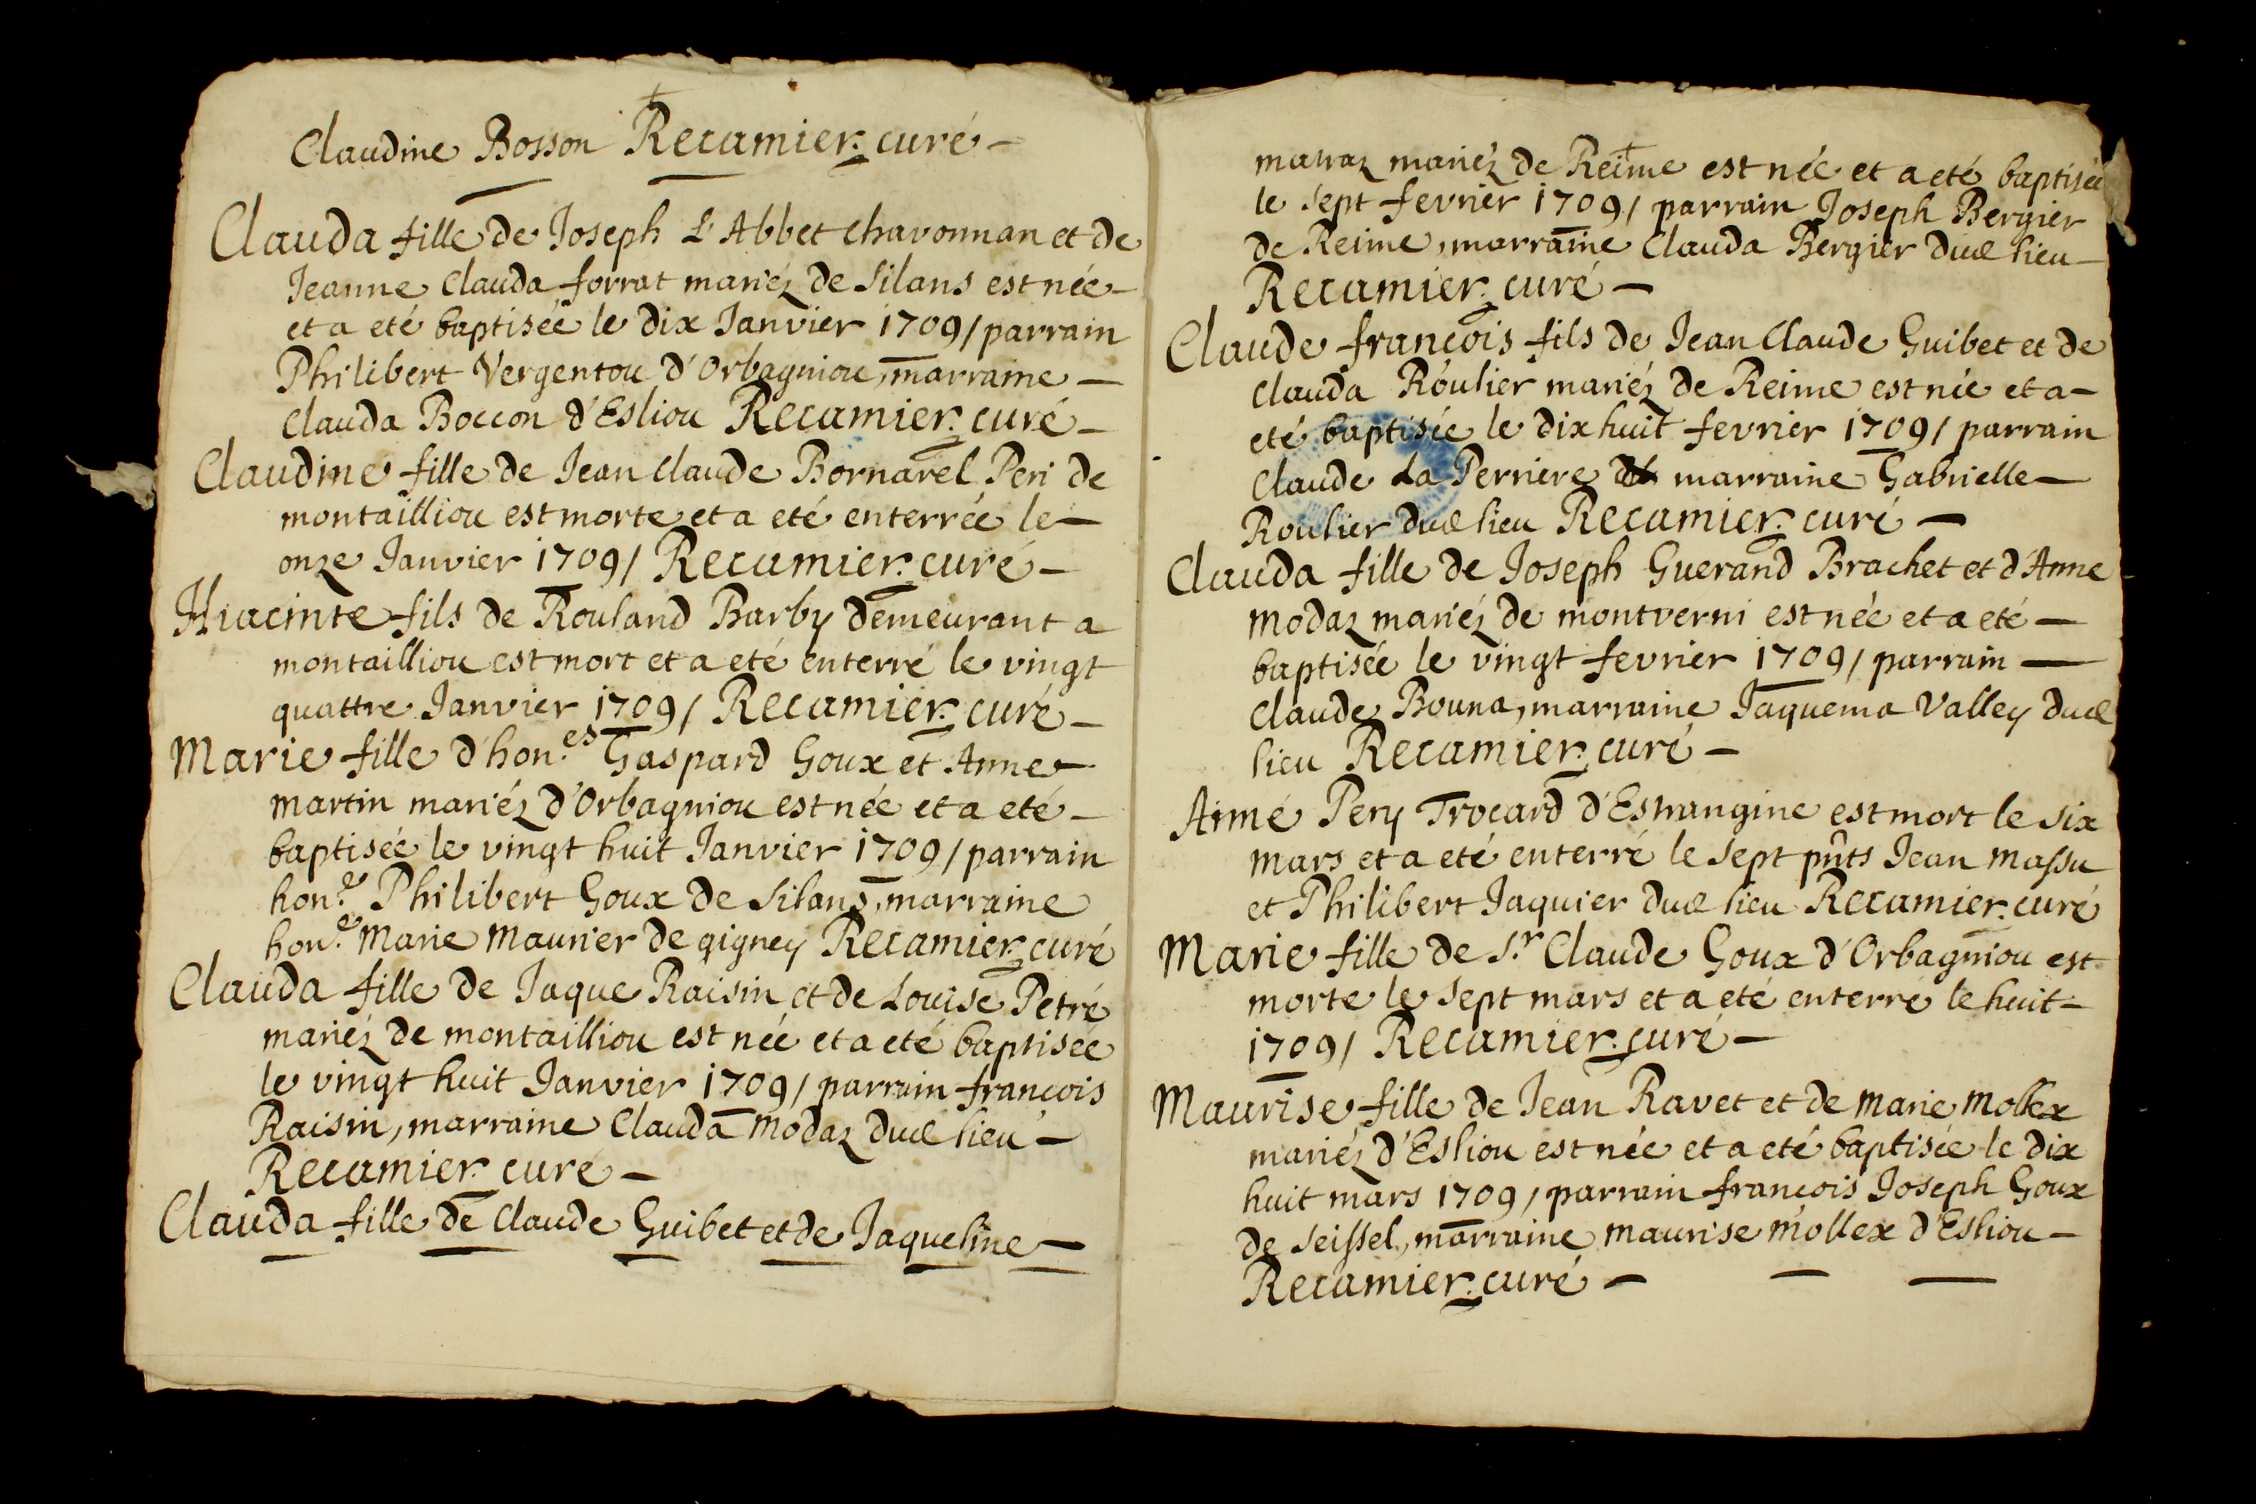 Claudine Bosson Recamier. curé –
Clauda fille de Joseph L'Abbet Chavonnan et de
Jeanne Clauda forrat mariéz de Silans est née –
et a eté baptisée le dix Janvier 1709/ parrain
Philibert Vergentou d'Orbagniou, marraine –
Clauda Boccon d'Esliou Recamier. curé –
Claudine fille de Jean Claude Bornarel Peri de
montailliou est morte et a eté enterrée le –
onze Janvier 1709/ Recamier. curé –
Hiacinte fils de Rouland Barby demeurant a
montailliou est mort et a eté enterré le vingt
quattre Janvier 1709/ Recamier. curé –
Marie fille d'hon.es Gaspard Goux et Anne
Martin mariéz d'Orbagniou est née et a eté –
baptisée le vingt huit Janvier 1709/ parrain
hon.e Philibert Goux de Silans, marraine
hon.e Marie Maurier de gigney Recamier. curé
Clauda fille de Jaque Raisin et de Louise Petré
mariéz de montailliou est née et a eté baptisée
le vingt huit Janvier 1709/ parrain françois
Raisin, marraine Clauda Modaz dud lieu –
Recamier. curé –
Clauda fille de Claude Guibet et de Jaqueline –
matraz mariéz de Reime est née et a eté baptisée
le Sept fevrier 1709/ parrain Joseph Bergier
de Reime, marraine Clauda Bergier dud lieu –
Recamier. curé –
Claude françois fils de Jean Claude Guibet et de
Clauda Roulier mariéz de Reime est née et a –
eté baptisée le dix huit fevrier 1709/ parrain
Claude La Perriere marraine Gabrielle –
Roulier dud lieu Recamier. curé –
Clauda fille de Joseph Guerand Brachet et d'Anne
Modaz mariéz de montverni est née et a eté –
baptisée le vingt fevrier 1709/ parrain –
Claude Bouna, marraine Jaquema Valley dud
lieu Recamier. curé –
Aimé Pery Trocard d'Estrangine est mort le Six
Mars et a eté enterré le Sept pnts Jean Massu
et Philibert Jaquier dud lieu Recamier. curé
Marie fille de S.r Claude Goux d'Orbagniou est
morte le Sept mars et a eté enterré le huit –
1709/ Recamier. curé –
Maurise fille de Jean Ravet et de Marie Mollex
mariéz d'Esliou est née et a eté baptisée le dix
huit mars 1709, parrain françois Joseph Goux
de Seissel, marraine Maurise Mollex d'Esliou –
Recamier. curé –